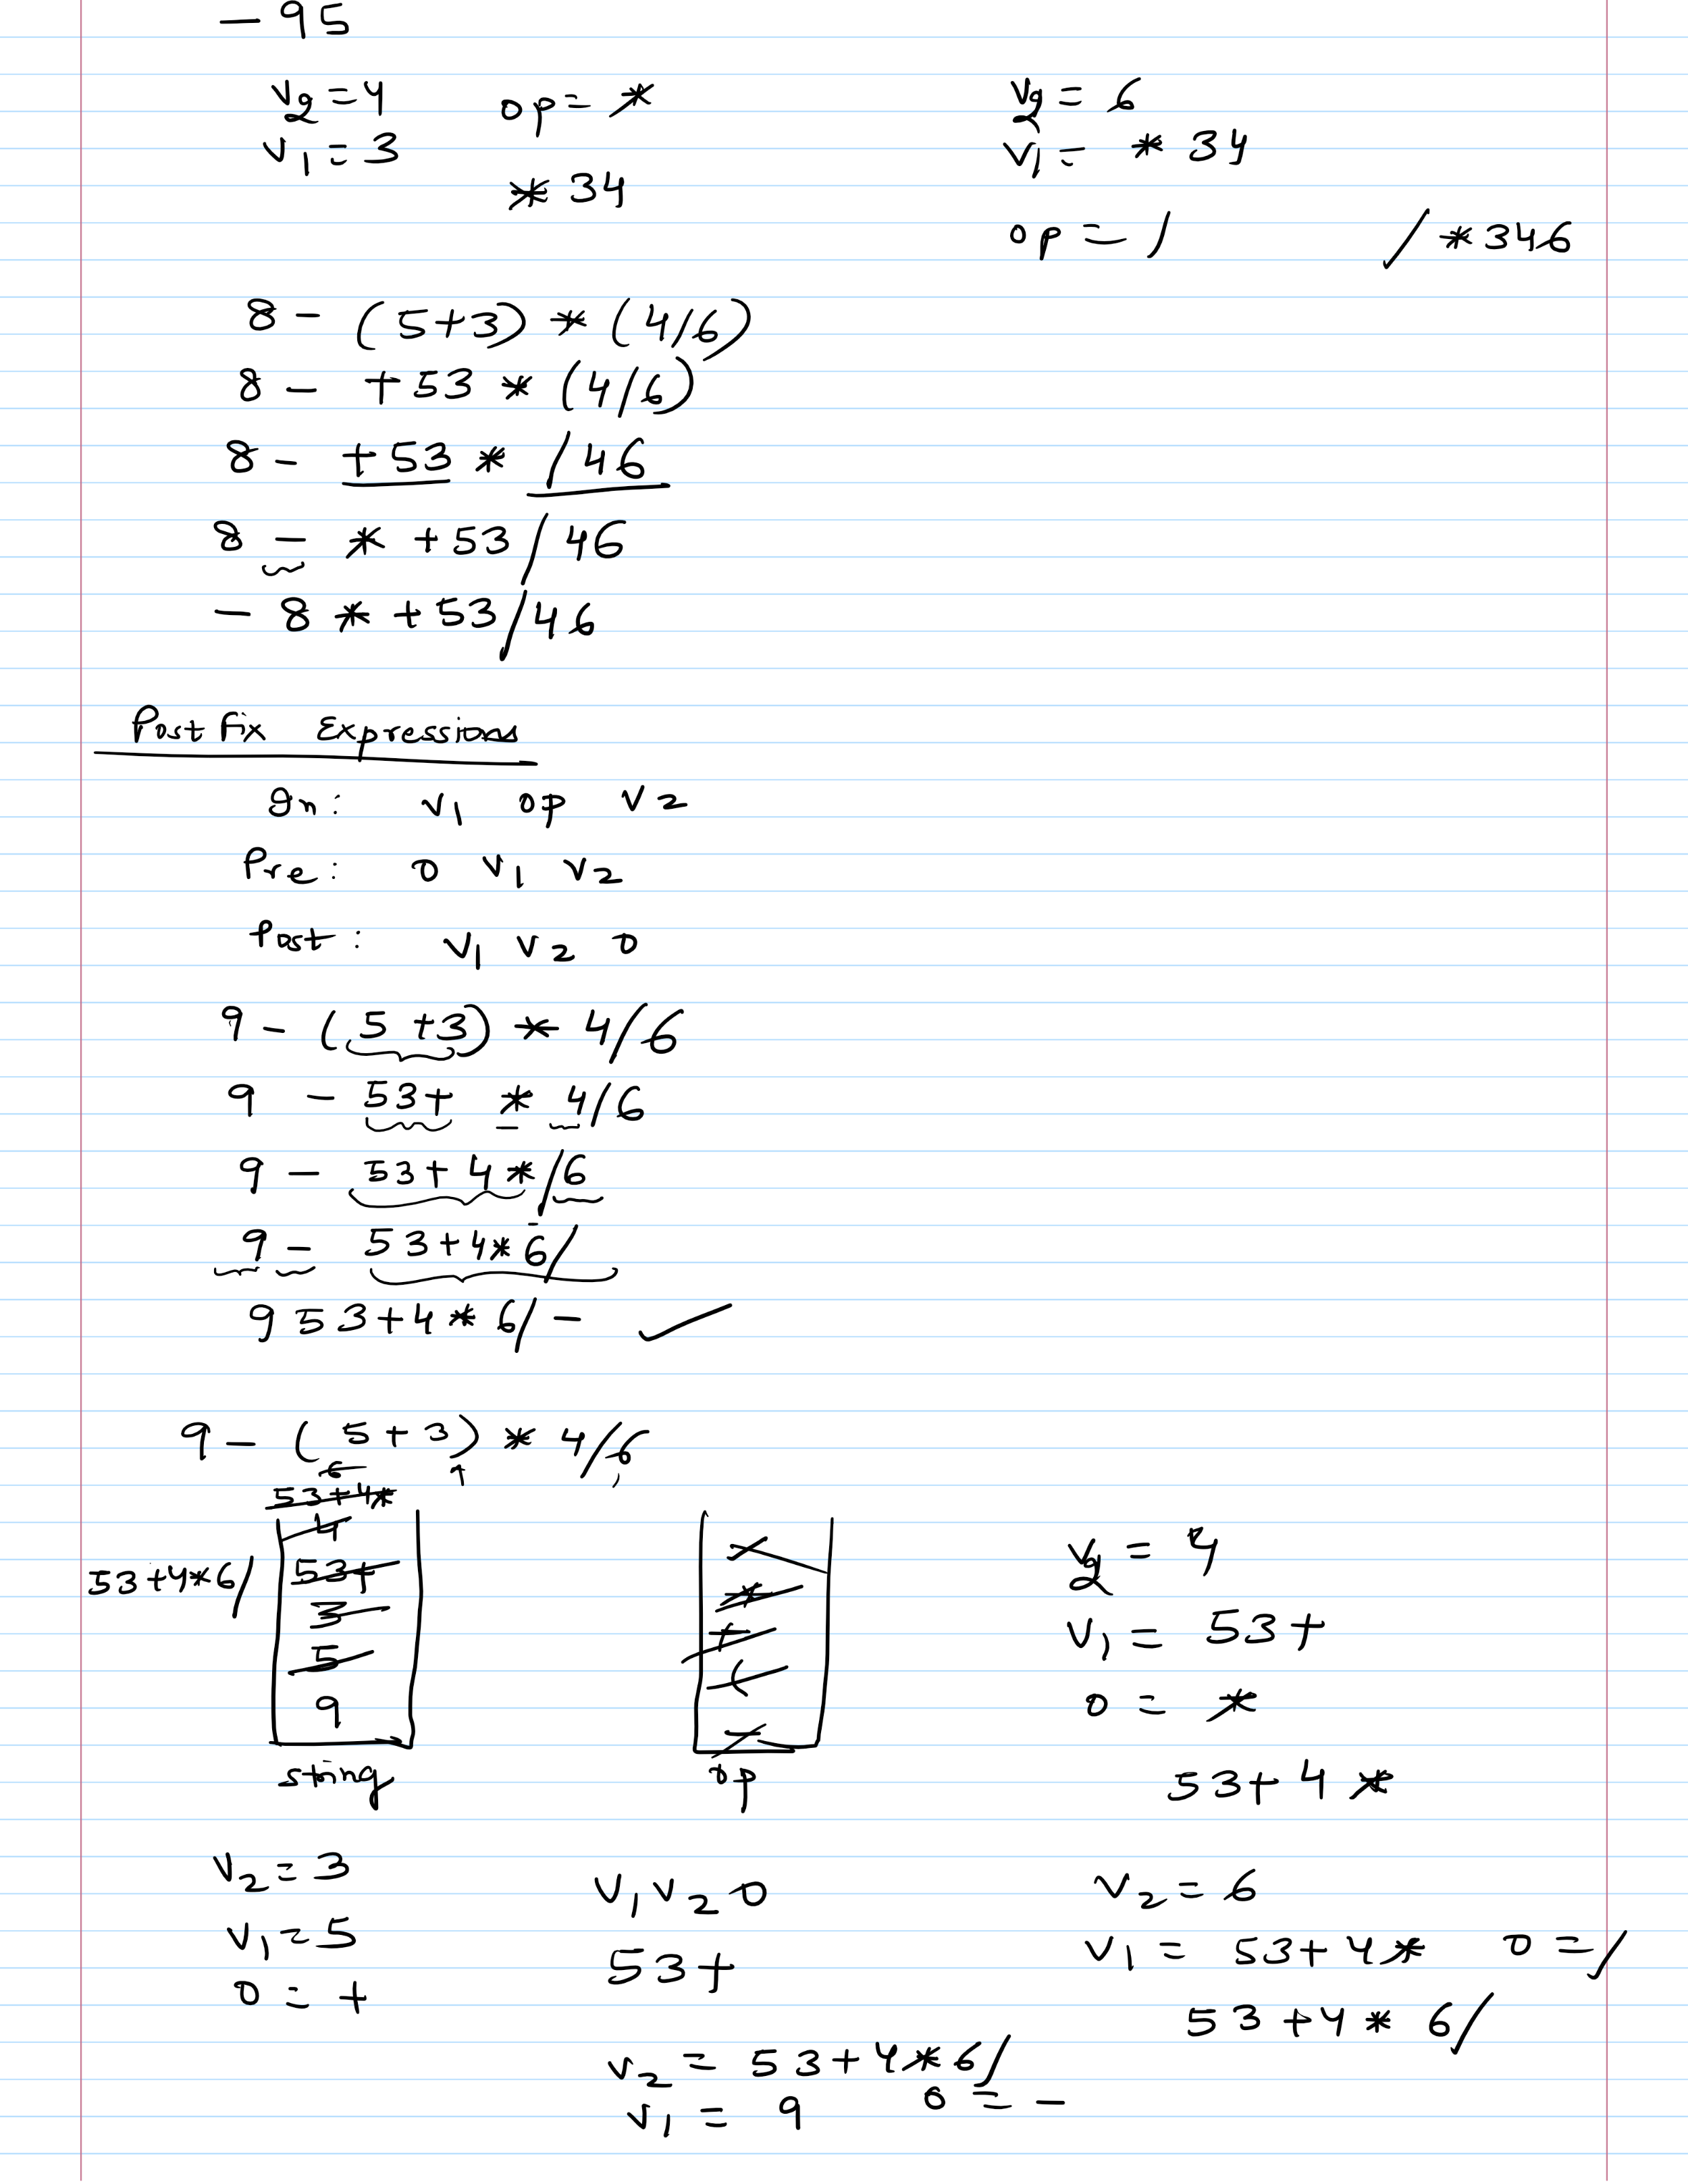 - 95
v2 = 4 op = * v2 = 6
v1 = 3 v1 = * 34
* 34
op = / / * 346
8 - (5+3) * (4/6)
8 - +53 * (4/6)
8 - +53 * /46
8 - * +53/46
- 8 * +53/46
Postfix Expressions
In: v1 op v2
Pre: o v1 v2
Post: v1 v2 o
9 - (5+3) * 4/6
9 - 53+ * 4/6
9 - 53+ 4 * /6
9 - 53+4*6/
9 53+4*6/-
9 - (5+3) * 4/6
6
53+4*
4
53+4*6/
53+
3
5
9
string
/
*
+
(
-
op
v2 = 4
v1 = 53+
o = *
53+ 4 *
v2 = 3
v1 = 5
o = +
v1 v2 o
53+
v2 = 6
v1 = 53+4* o = /
53+4* 6/
v2 = 53+4*6/
v1 = 9 o = -